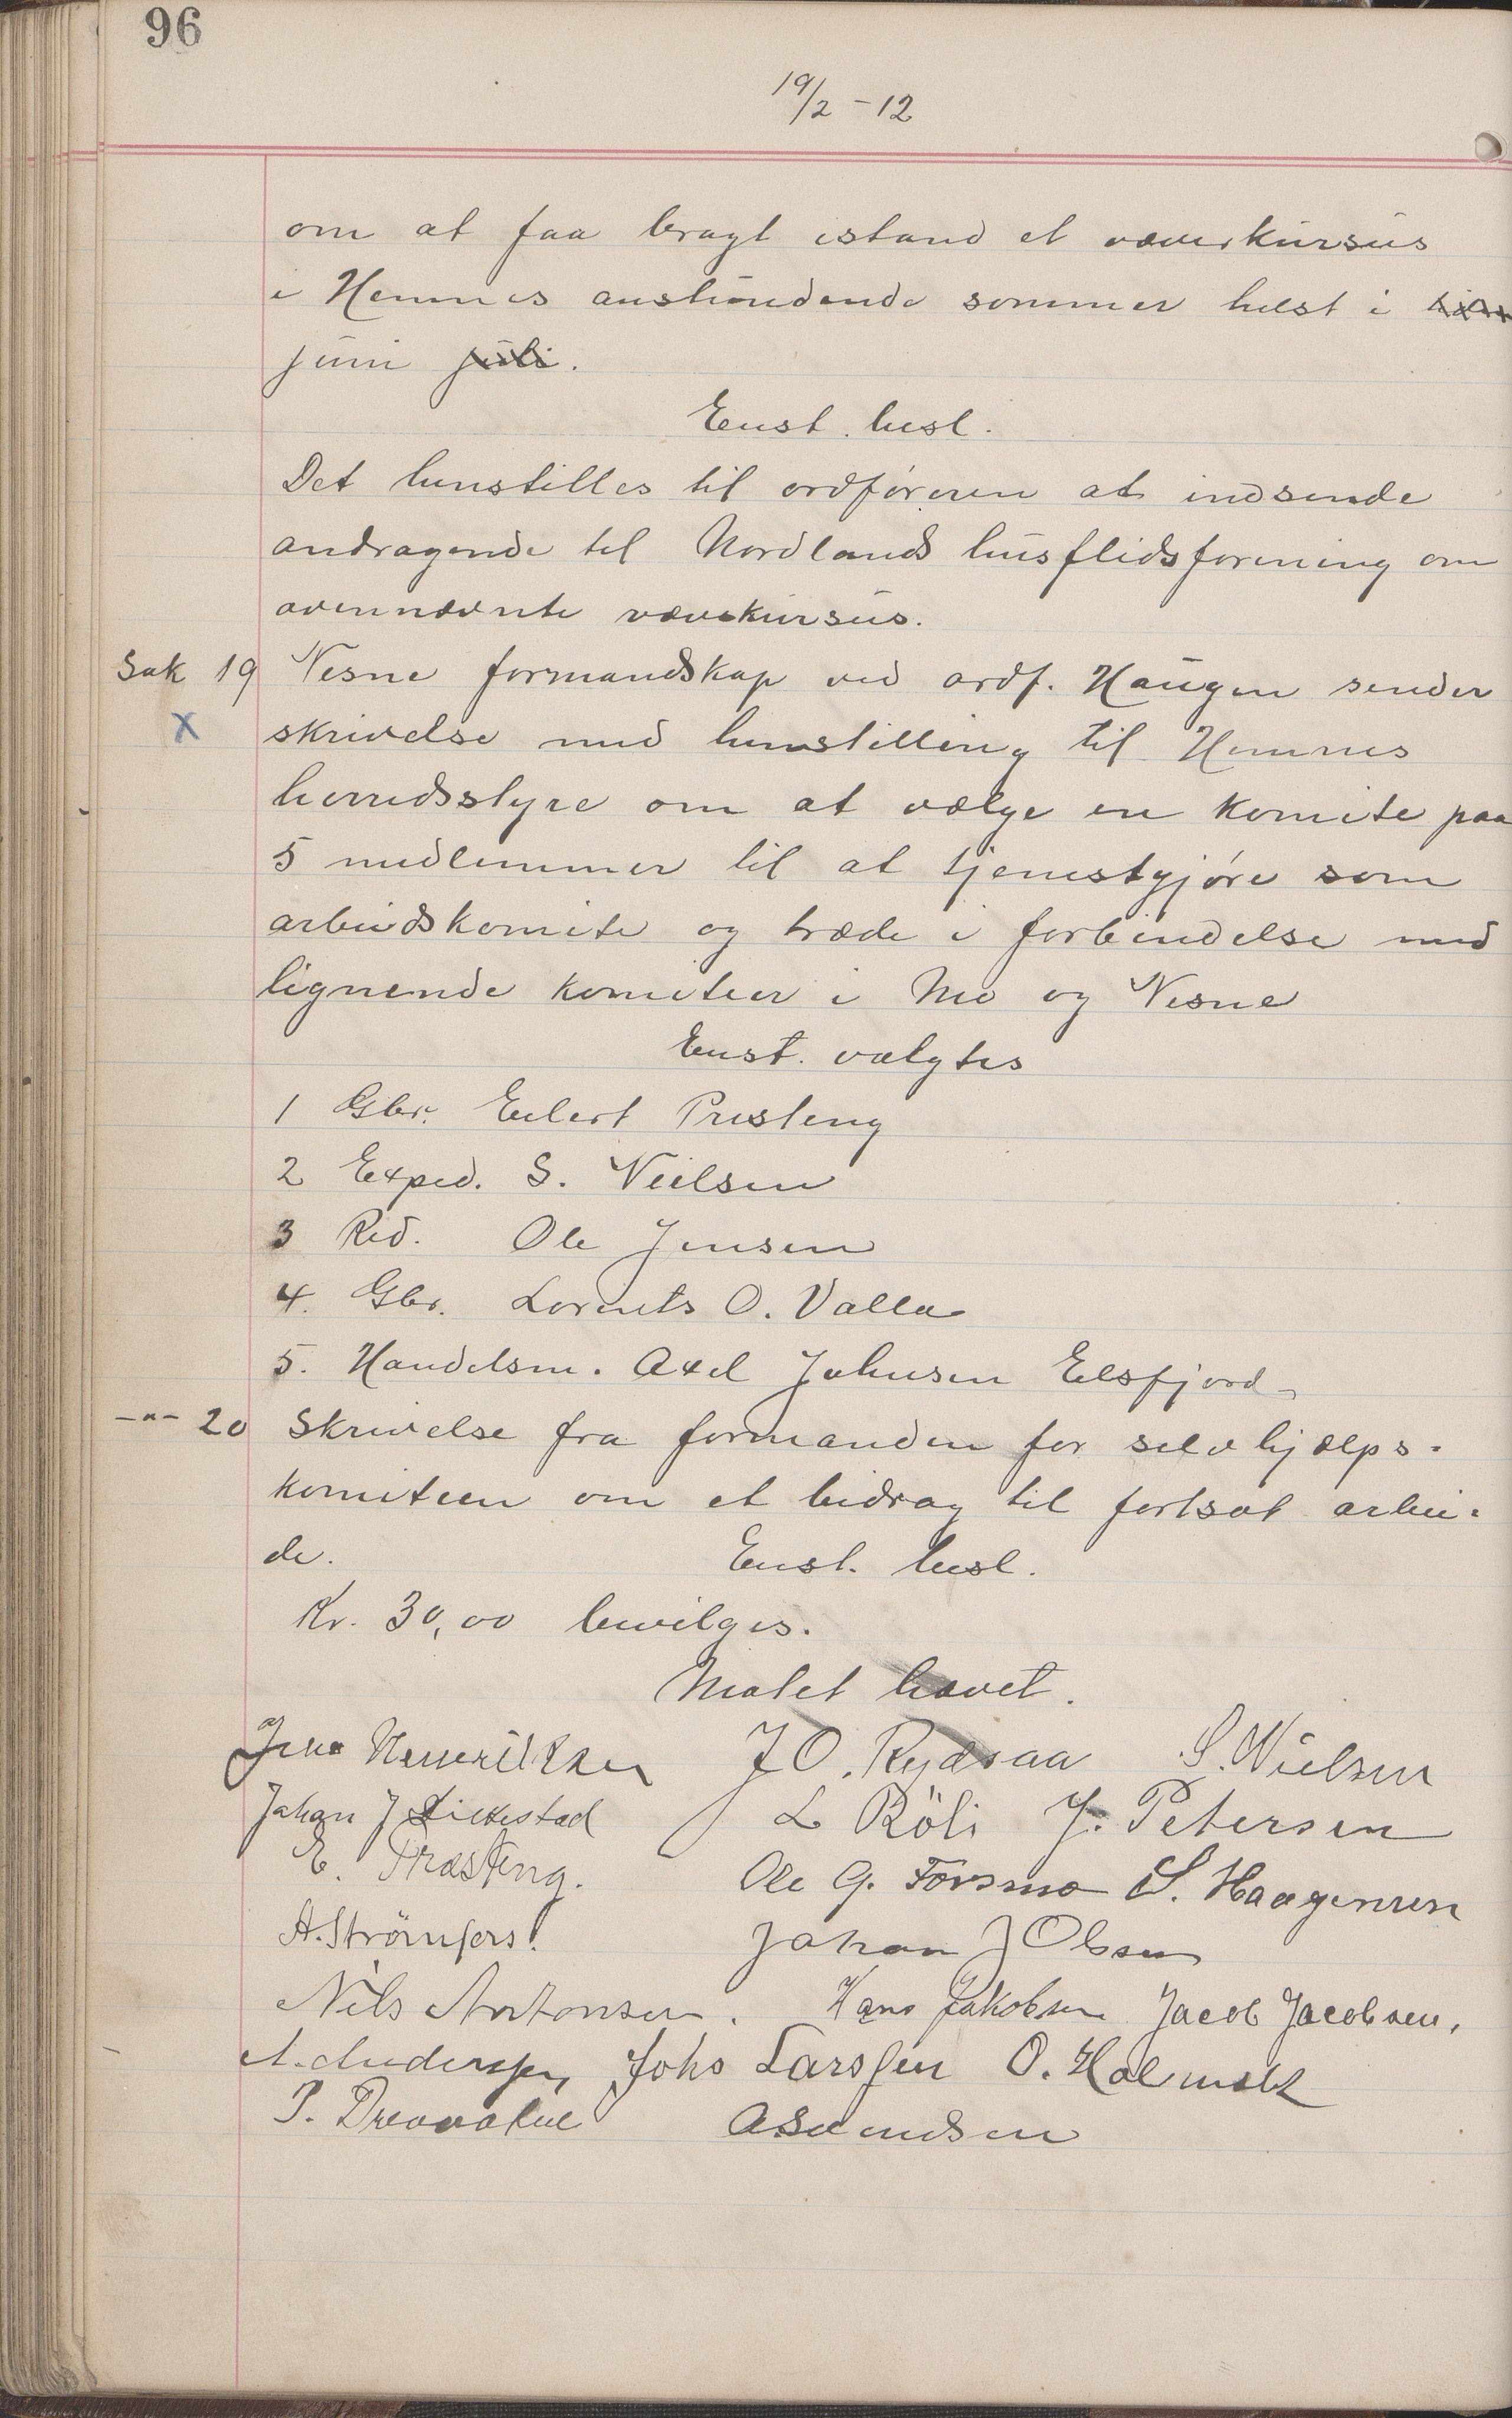 96
19/2 - 12
om at faa bragt istand et væverkursus
i Hemnes anstundende sommer helst i
juni juli.
Enst. besl.
Det henstilles til ordføreren at indsende
andragende til Nordlands husflidsforening om
ovennævnte vævekursus.
Sak 19 Nesne formandskap ved ordf. Haugen sender
X skrivelse med henstilling til Hemnes
herredsstyre om at vælge en komite paa
5 medlemmer til at tjenestgjøre som
arbeidskomite og træde i forbindelse med
lignende komiteer i Mo og Nesne
Enst. valgtes
1 Gbr. Eilert Presteng
2 Exped. S. Nielsen
3 Red. Ole Jensen
4. Gbr. Lorents O. Valla
5. Handelsm. Axel Johnsen Elsfjord
-"- 20 Skrivelse fra formanden for selvhjælps-
komiteen om et bidrag til fortsat arbei-
de. Enst. besl.
Kr. 30,00 bevilges.
Møtet hævet.
Jens Henriksen J O. Rydsaa S. Nielsen
Johan J L Röli J. Petersen
E. Præsteng. Ole G. Forsmo S. Haagensen
A. Strömfors. Johan J Olsen
Nils Antonsen. Hans Jakobsen Jacob Jacobsen,
A. Anderssen, Johs Larssen O. Holmslet
P. A Svendsen